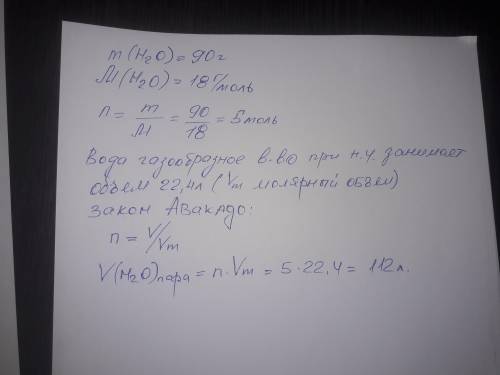 m(H₂O) = 90г
M(H₂O) = 18 г/моль
n = m/M = 90/18 = 5 моль
Вода газообразное в.во при н.у. занимает
объем 22,4л (Vm молярный объем)
Закон Авакадо:
n = V/Vm
V(H₂O)пара = n·Vm = 5·22,4 = 112л.